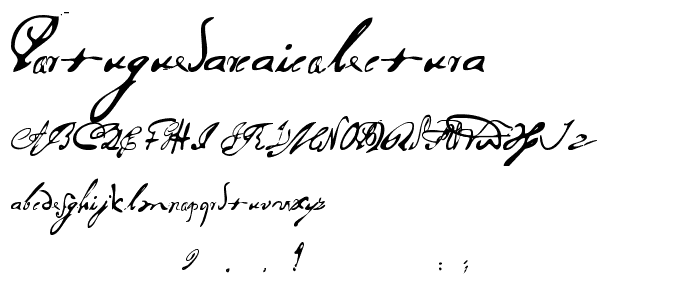 PortuguesArcaicoLectura
ABCDEFGHIJKLMNOPQRSTUVWXYZ
abcdefghijklmnopqrstuvwxyz
? . , ! : ;